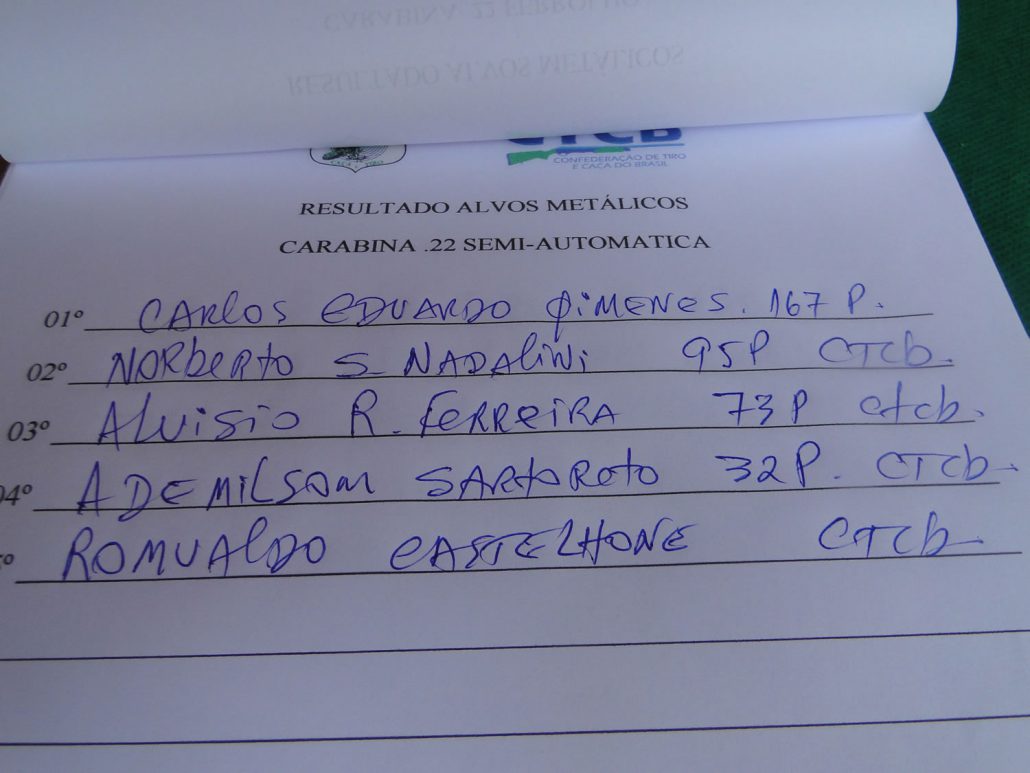 CARABINA .22 FERROLHO
RESULTADO ALVOS METÁLICOS
CTCB
CAÇA E TIRO
CONFEDERAÇÃO DE TIRO
E CAÇA DO BRASIL
RESULTADO ALVOS METÁLICOS
CARABINA .22 SEMI-AUTOMATICA
01º CARlos EDUARDO GiMENES. 167 P.
02º NORberto S. NADAliNi 95P CTCb.
03º Aluisio R. FERReiRA 73P ctcb.
04º ADEMilSOM SARtoRoto 32P. CTCb.
º ROMUAlDO CASTELHONE CTCb.